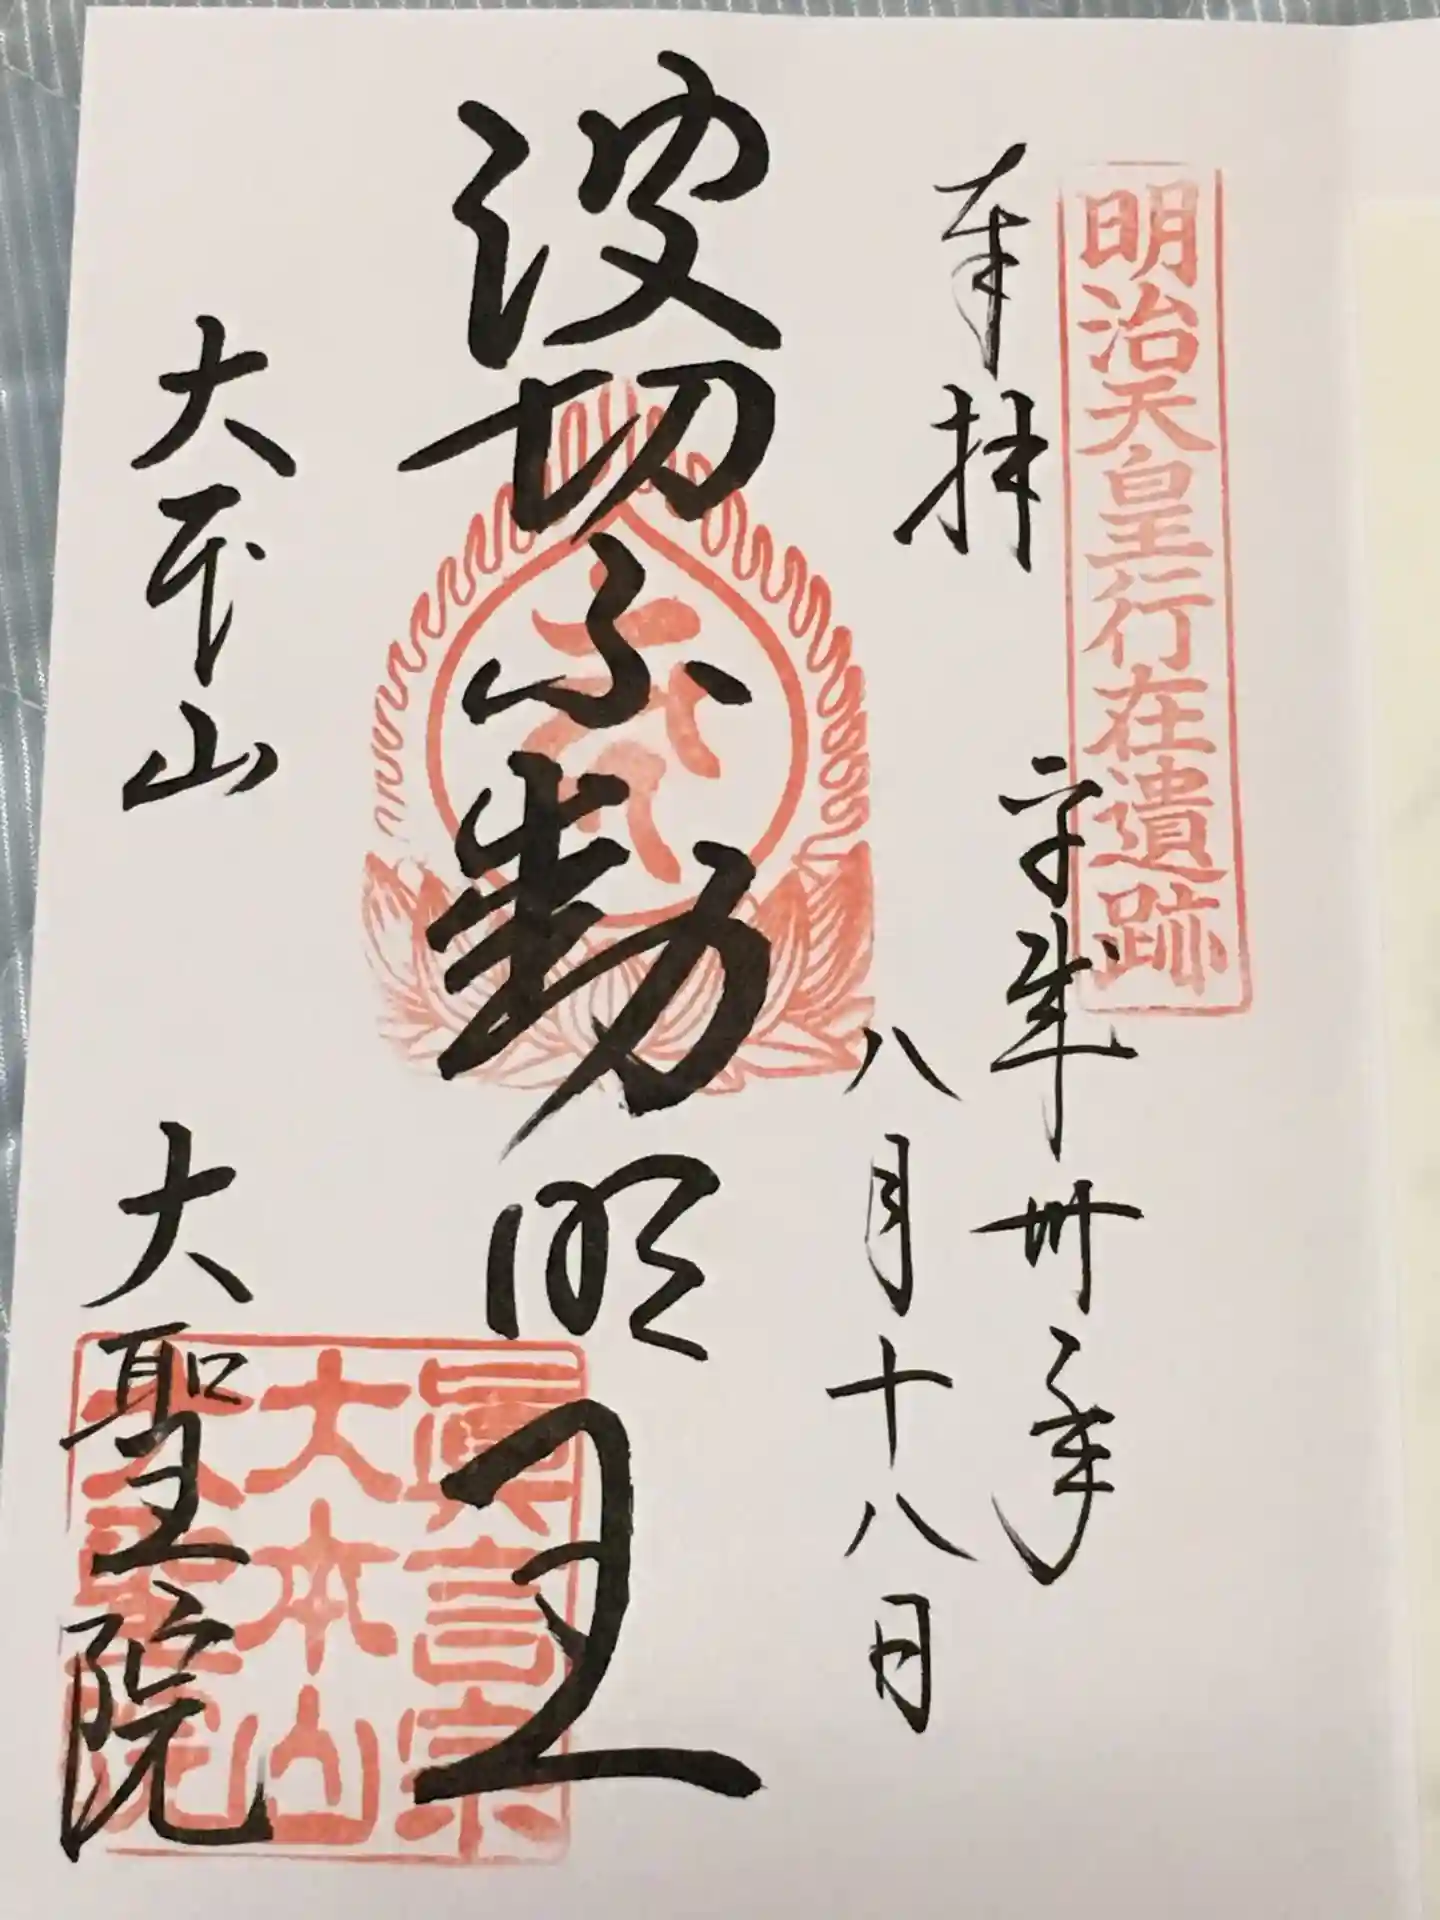 明治天皇行在遺跡
奉拝
平成卅年
八月十八日
波切不動明王
大本山 大聖院
眞言宗
大本山
大聖院